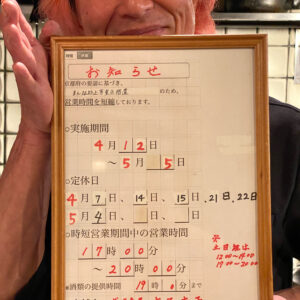 お知らせ
京都府の要請に基づき、
まん延防止等重点措置 のため、
営業時間を短縮しております。
○実施期間
4月12日
～5月5日
○定休日
4月7日、14日、15日、21日、22日
5月4日、 日、 日、
○時短営業期間中の営業時間
17時00分
～20時00分
※酒類の提供時間 19時0
※
土日祝は
12:00～14:00
17:00～20:00